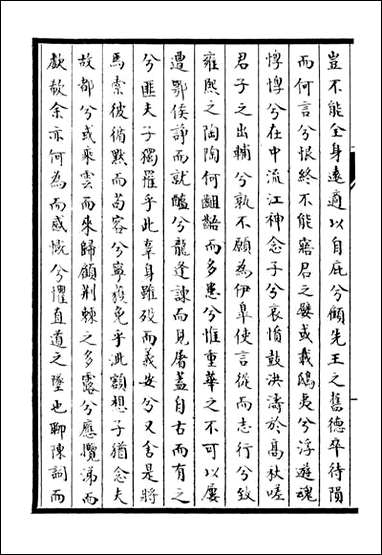 豈不能全身遠適以自庇兮顧先王之舊德卒待隕
而何言兮恨終不能寤君之嬖或裁鴟夷兮浮遊魂
惸惸兮在中流江神念子兮哀憤鼓洪濤於高秋嗟
君子之出輔兮孰不願為伊皋使言從而志行兮致
雍熙之陶陶何齟齬而多患兮惟重華之不可以屢
遭鄂侯諍而就醢兮龍逄諫而見屠蓋自古而有之
兮匪夫子獨罹乎此辜身雖歿而義安兮又舍是將
焉索彼循默而苟容兮寧蔑免乎泚額想子猶念夫
故都兮或乘雲而來歸顧荊棘之多露兮應攬涕而
歔欷余亦何為而感慨兮懼直道之墜也聊陳詞而